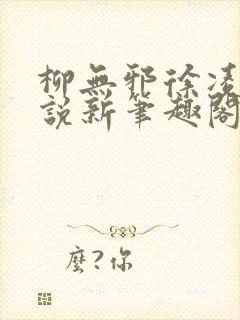 柳無邪徐凌
說新筆趣閣
麼?你